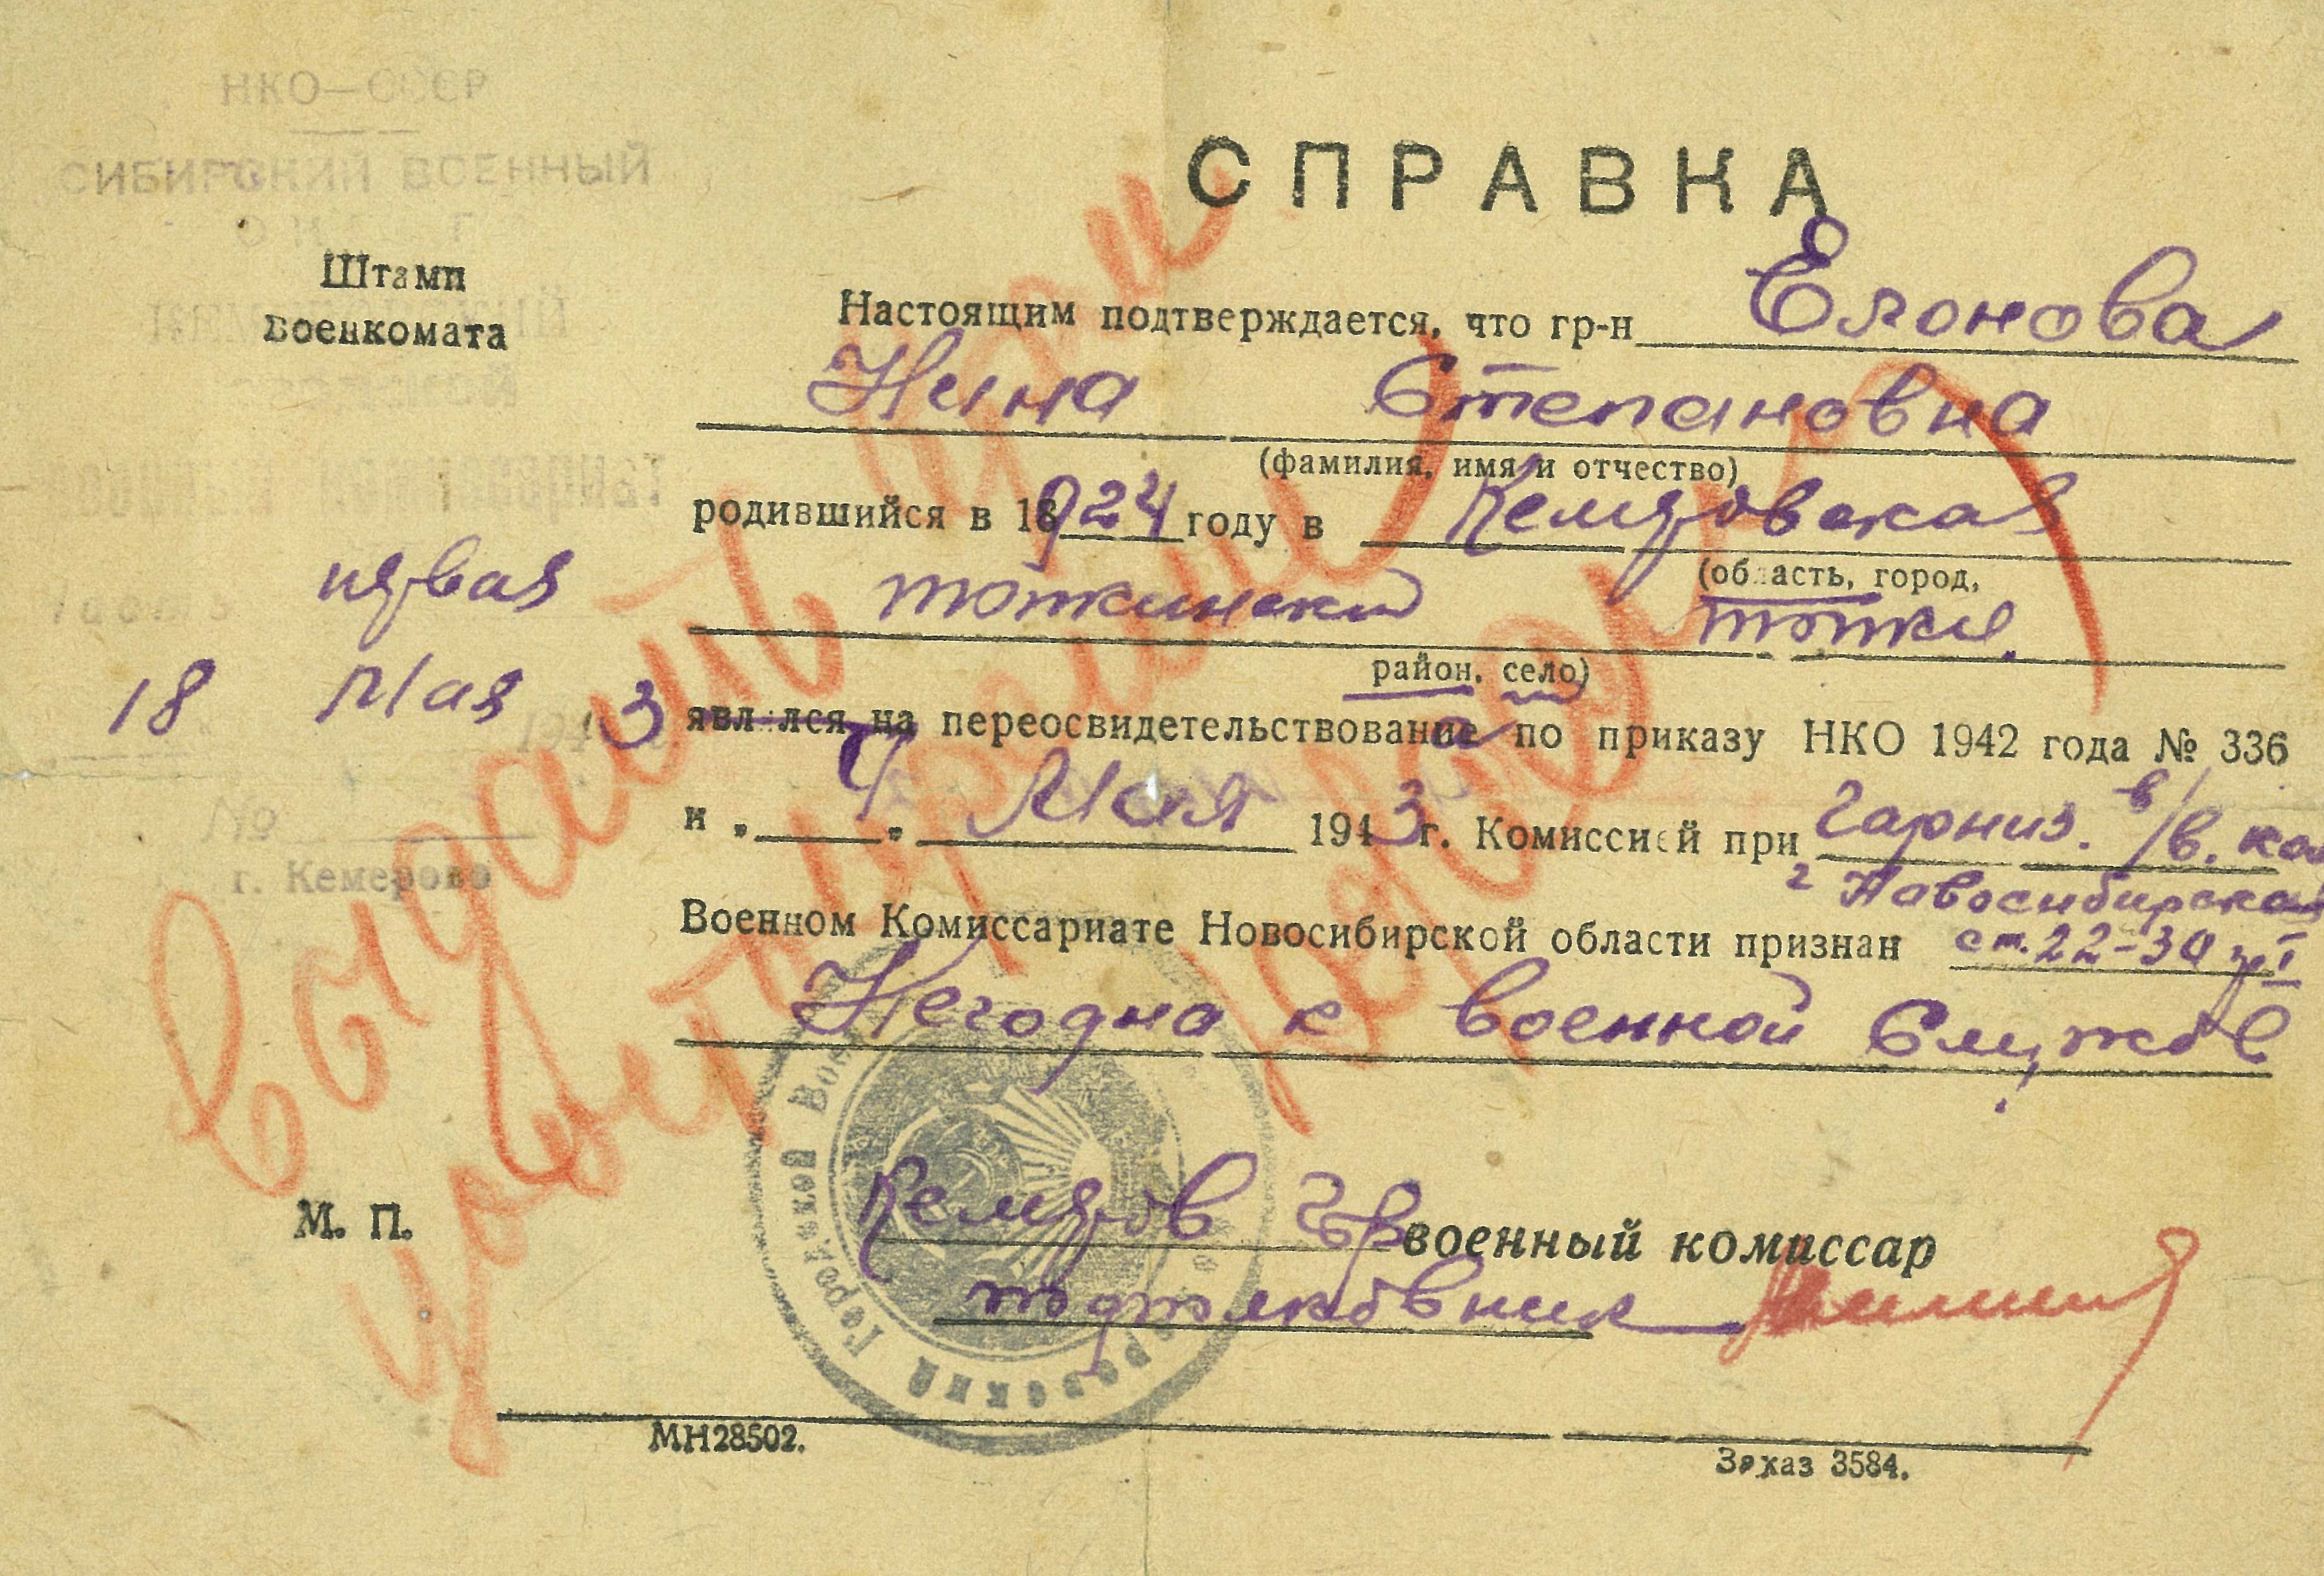 НКО—СССР
СИБИРСКИЙ ВОЕННЫЙ
Штамп
Военкомата
первая
18 Мая 1943
№
г. Кемерово
СПРАВКА
Настоящим подтверждается, что гр-н Егонова
Нина Степановна
(фамилия, имя и отчество)
родившийся в 18924 году в Кемеровская
(область, город,
топкинский топки.
район, село)
явился на переосвидетельствование по приказу НКО 1942 года № 336
и „4" Мая 1943 г. Комиссией при Гарниз. в/в. ком
г Новосибирска
Военном Комиссариате Новосибирской области признан ст. 22-30 гр I
Негодна к военной службе
М. П.
Кемеров гор военный комиссар
подполковник
МН28502.
Заказ 3584.
выдать при